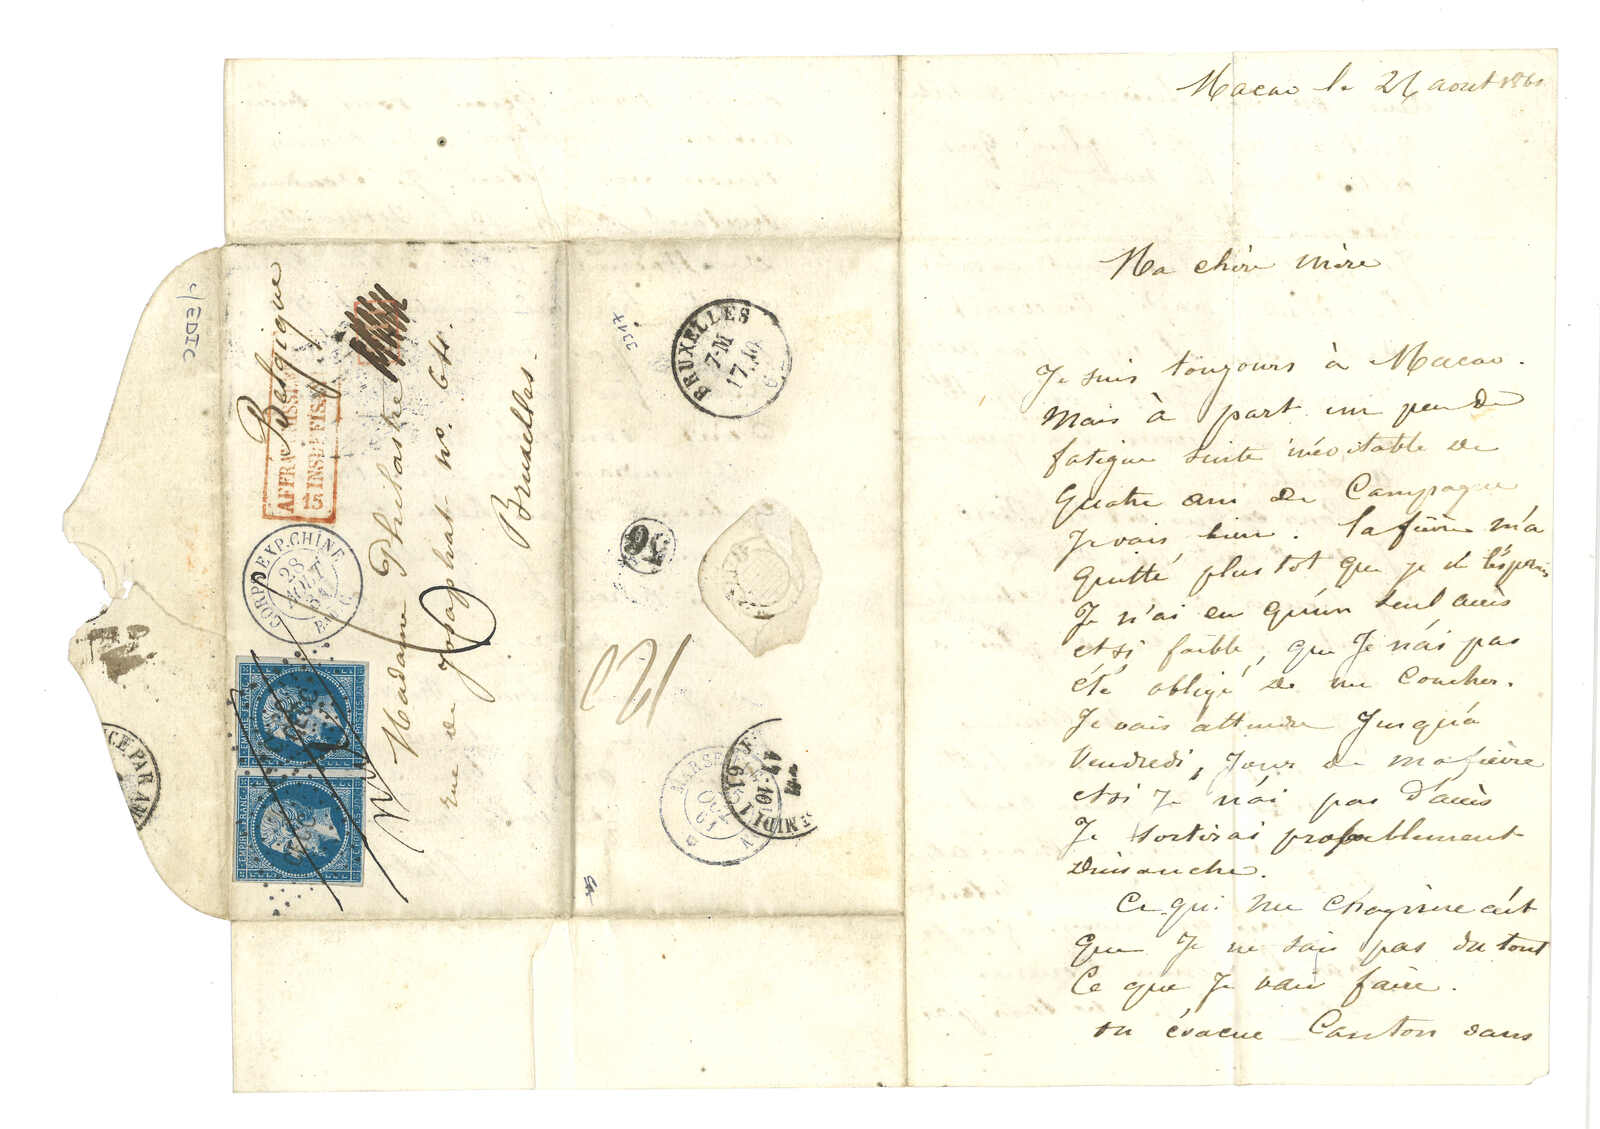 Macao le 24 aout 1861
Ma chère mère
Je suis toujours à Macao.
Mais à part un peu de
fatigue suite inévitable de
quatre ans de Campagne
Je vais bien. la fièvre m'a
quitté plus tot que je ne l'espérais
Je n'ai eu qu'un seul accès
et si faible, que Je n'ai pas
été obligé de me Coucher.
Je vais attendre Jusqu'a
Vendredi, Jour de ma fièvre
et si Je n'ai pas d'accès
Je sortirai probablement
Dimanche.
Ce qui me chagrine c'est
que Je ne sais pas du tout
Ce que Je vais faire.
on évacue Canton dans
Belgique
Madame Philastre
rue de Josaphat no. 64.
Bruxelles.
AFFR
INSUFFISANT
15
CORPS EXP. CHINE
28
AOUT
61
EMPIRE FRANC
20 C. POSTES 20 C.
EMPIRE FRANC
20 C. POSTES 20 C.
BRUXELLES
7-M
17 10
36
MARSE
10
MIDI 1
10
61
CE PAR AM
c/EDIC